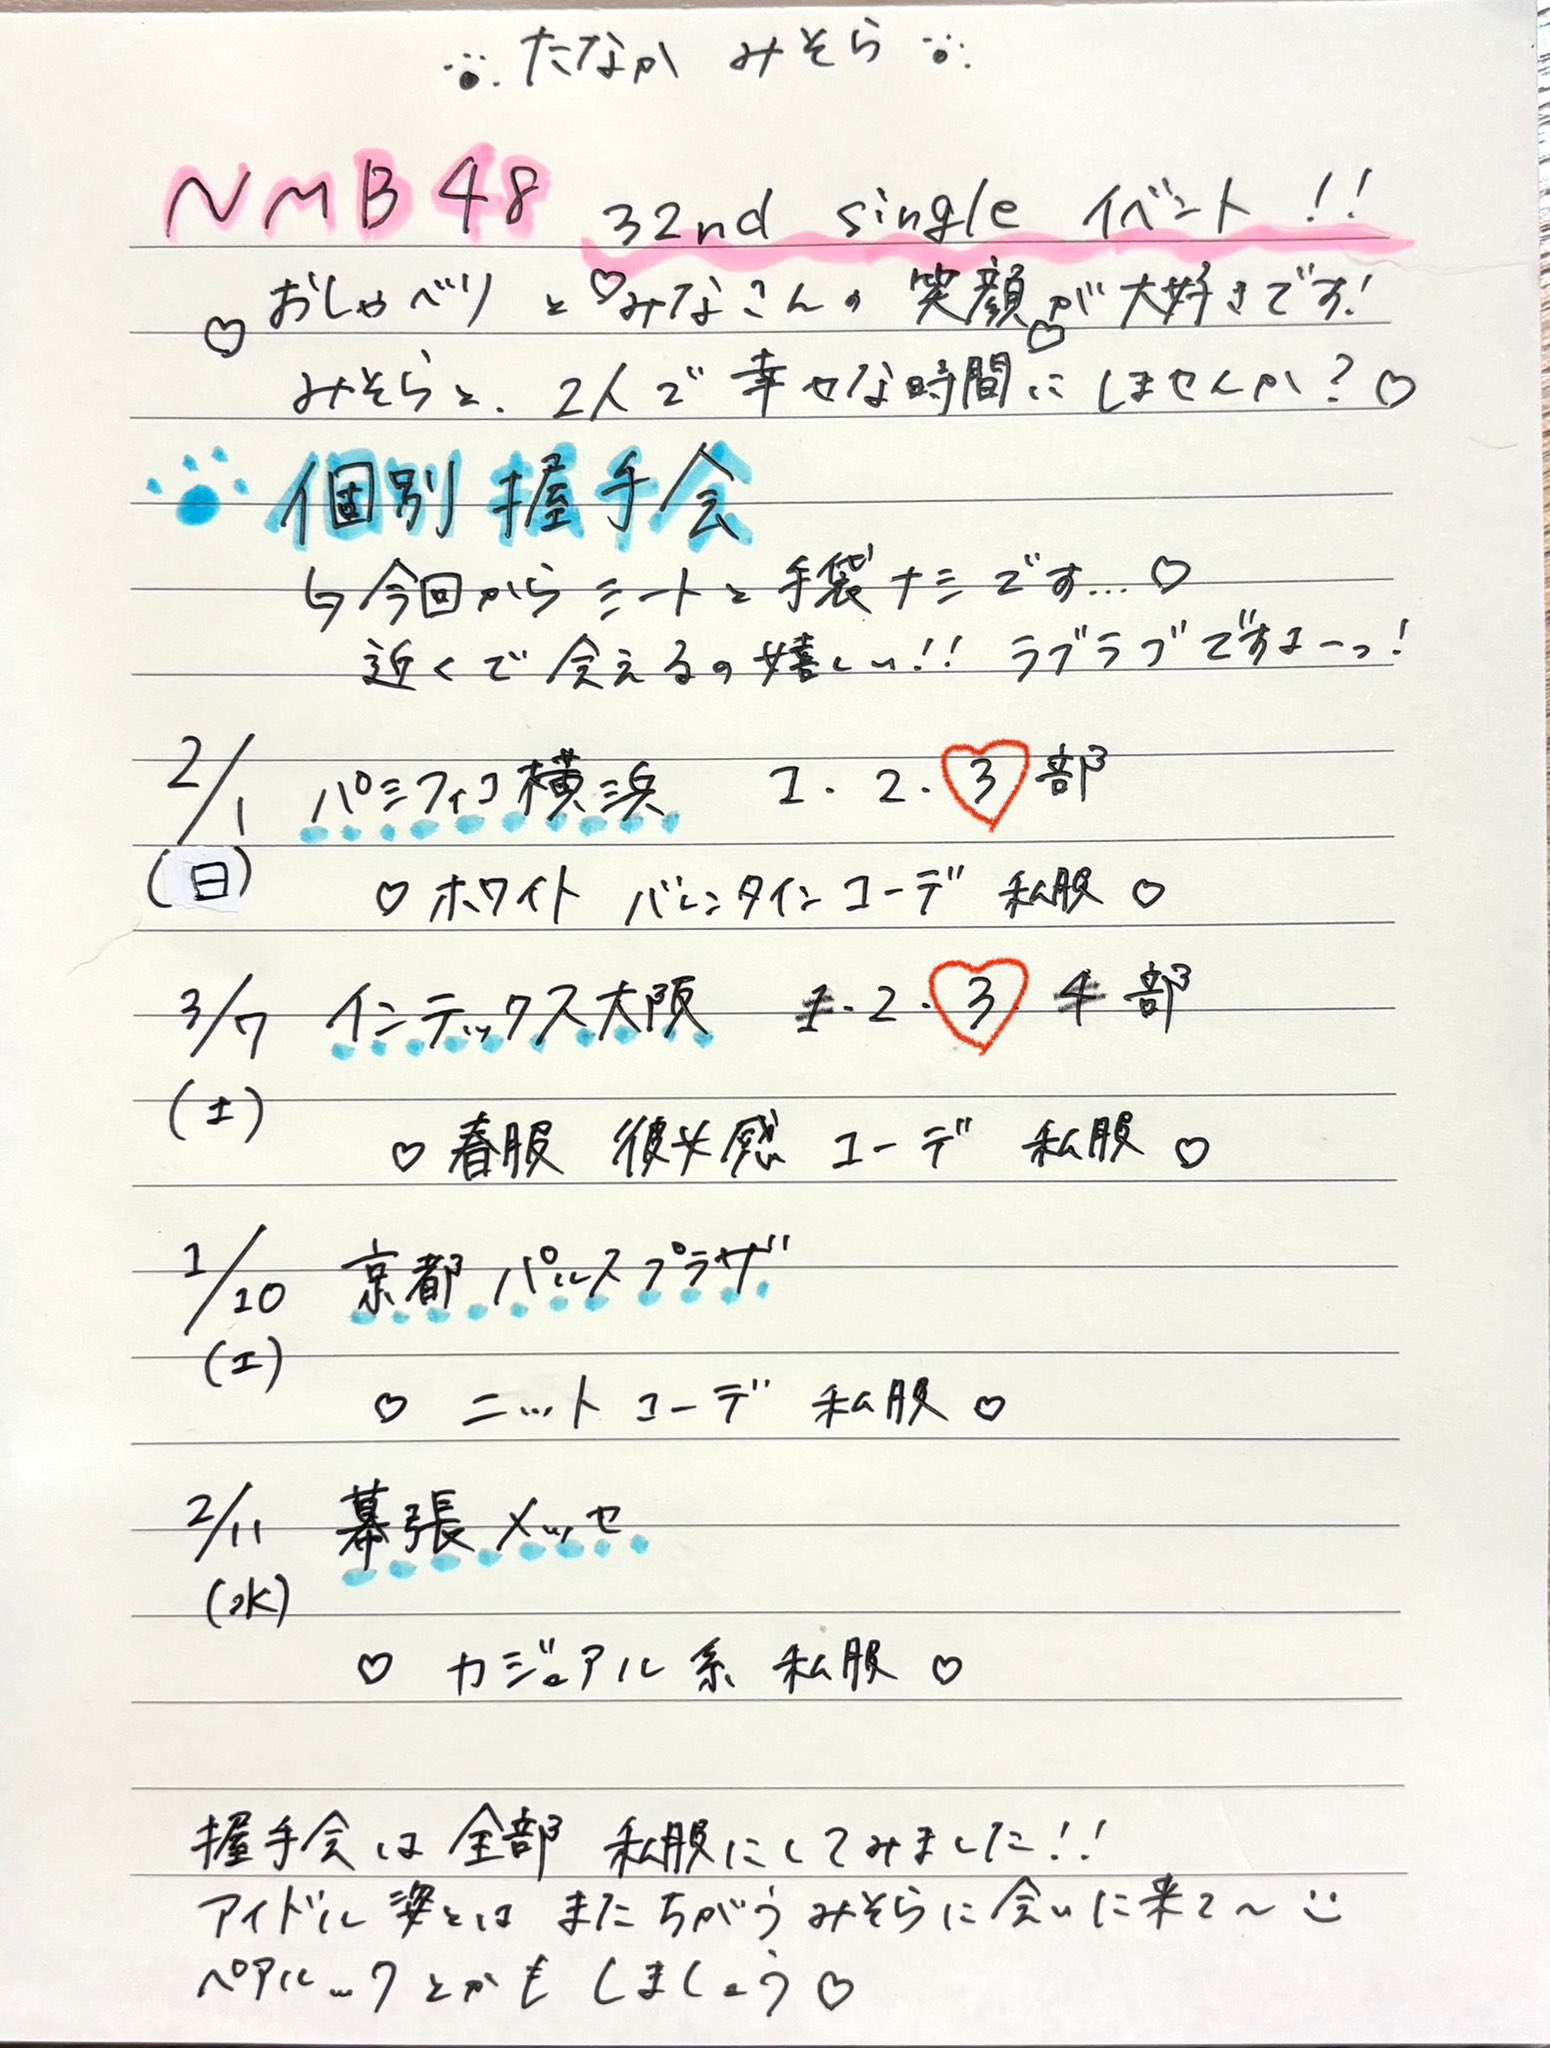 たなか みそら
NMB48 32nd single イベント!!
おしゃべりと♡みなさんの笑顔が大好きです!
♡ ♡
みそらと、2人で幸せな時間にしませんか?♡
個別握手会
↳今回からシートと手袋ナシです...♡
近くで会えるの嬉しい!! ラブラブですよーっ!
2/1 パシフィコ横浜 1.2.3部
(日) ♡ホワイトバレンタインコーデ 私服♡
3/7 インテックス大阪 1.2.3 4部
(土)
♡春服 彼女感 コーデ 私服♡
1/10 京都パルスプラザ
(土)
♡ ニットコーデ 私服♡
2/11 幕張メッセ
(水)
♡ カジュアル系 私服 ♡
握手会は全部 私服にしてみました!!
アイドル姿とはまたちがうみそらに会いに来て〜
ペアルックとかもしましょう♡